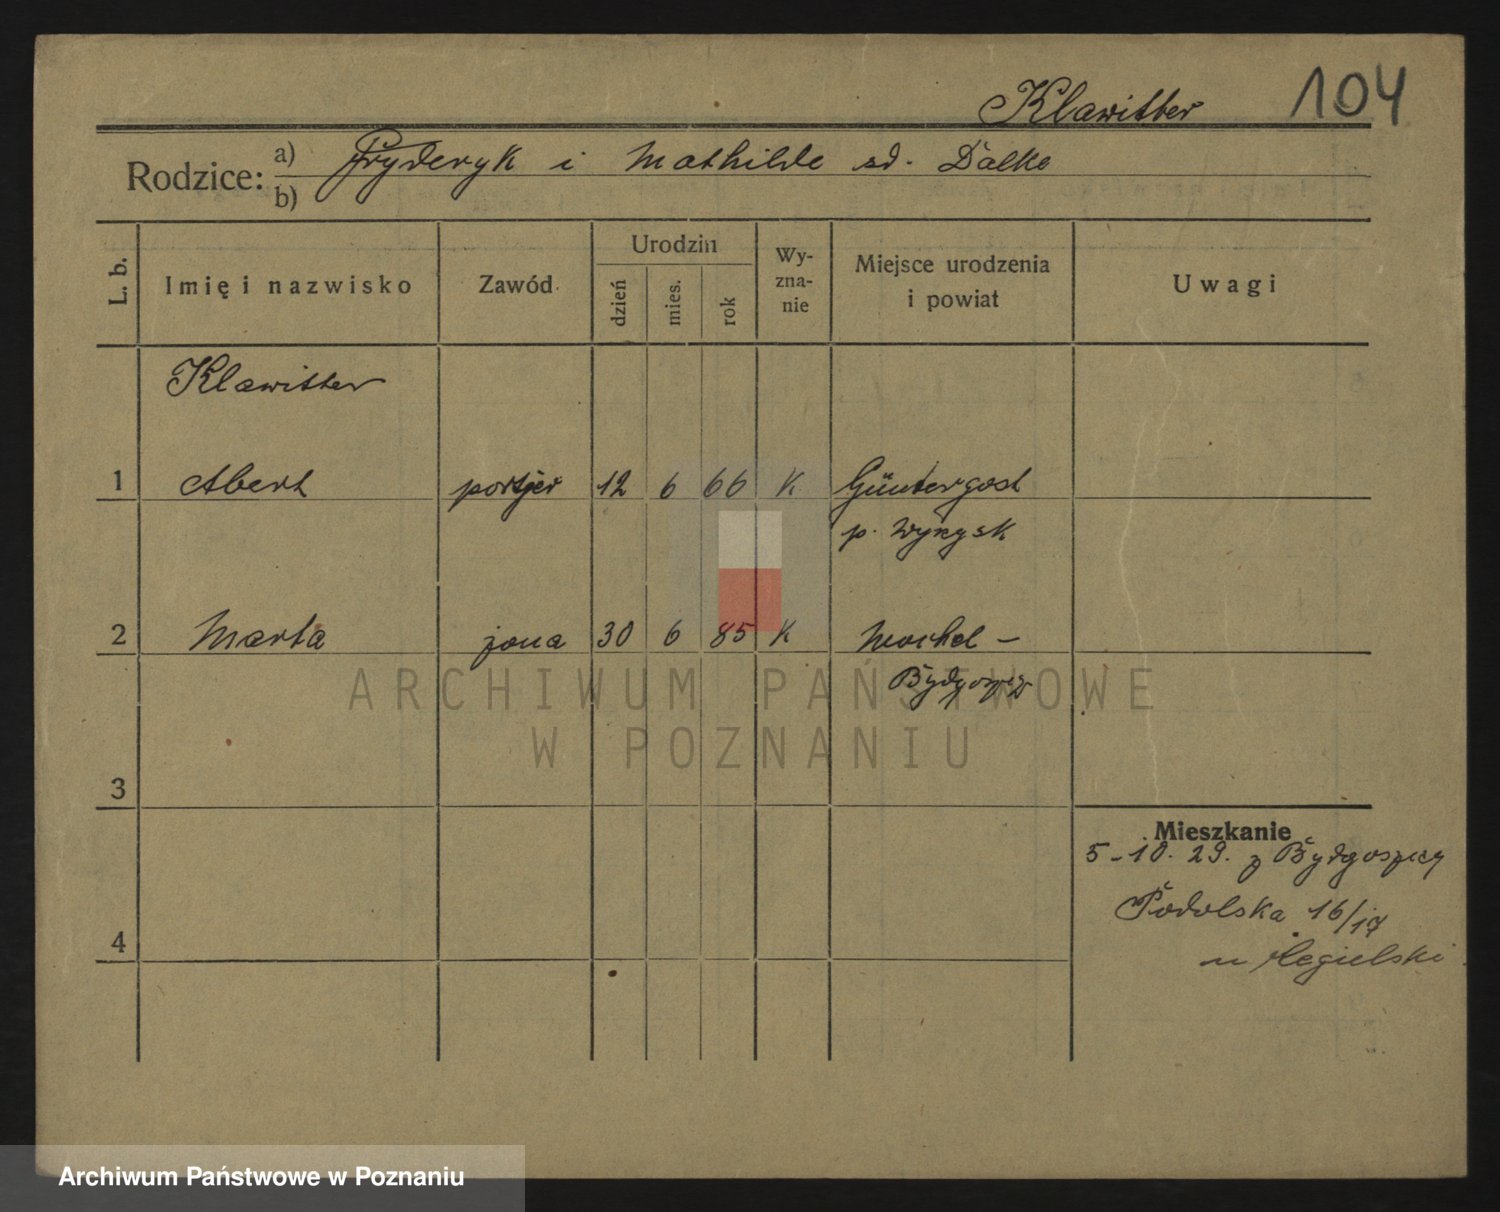 Klawitter 104
Rodzice: a) Fryderyk i Mathilde sd. Dalke
b)
L. b. Imię i nazwisko Zawód Urodzin Wy-zna-nie Miejsce urodzenia i powiat Uwagi
dzień mies. rok
Klawitter
1 Albert portjer 12 6 66 K Güntergost
p. Wyrzysk
2 Marta żona 30 6 85 K Mochel –
Bydgoszcz
ARCHIWUM PAŃSTWOWE
W POZNANIU
3
Mieszkanie
5-10.29. z Bydgoszczy
4 Podolska 16/17
u Cegielski
Archiwum Państwowe w Poznaniu